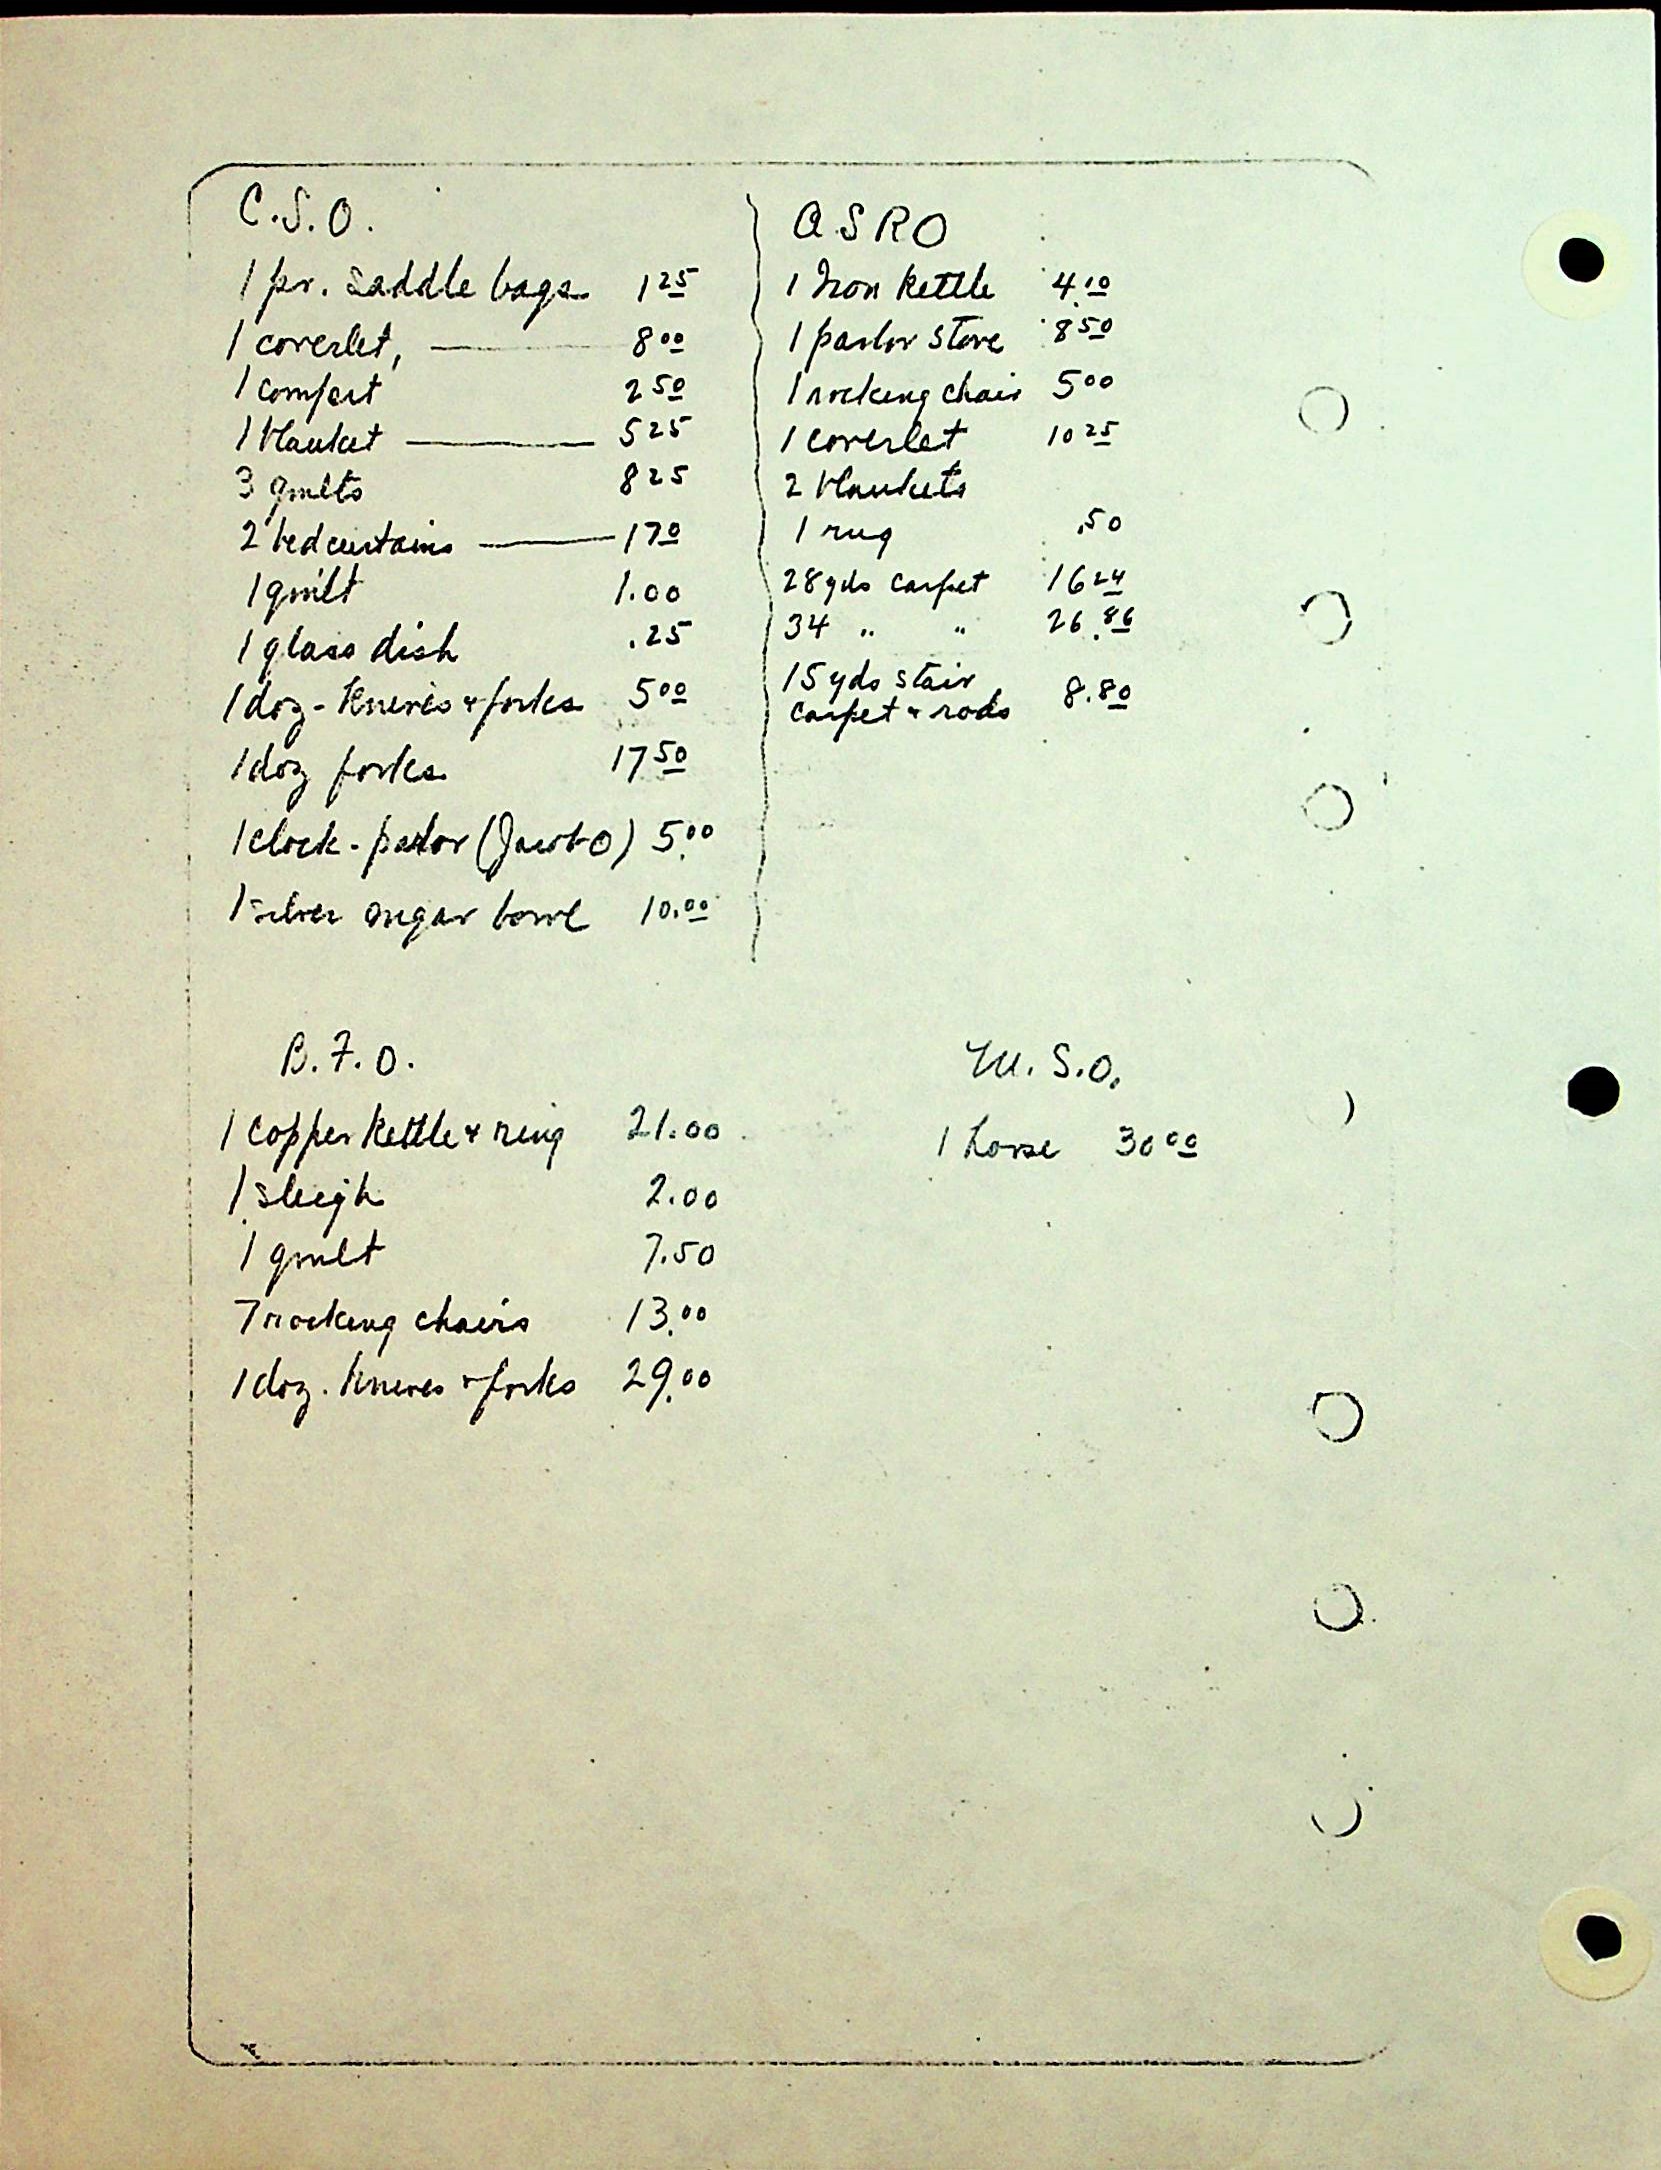 C.S.O.
1 pr. saddle bags 1 25
1 coverlet, — 8 00
1 comfort 2 50
1 blanket — 5 25
3 quilts 8 25
2 bed curtains — 1 70
1 quilt 1.00
1 glass dish .25
1 doz - Knives & forks 5 00
1 doz forks 17 50
1 clock - parlor (Jacob O) 5.00
1 silver sugar bowl 10.00
A.S R O
1 Iron kettle 4.10
1 parlor stove 8 50
1 rocking chair 5 00
1 coverlet 10 25
2 blankets
1 rug .50
28 yds carpet 16 24
34 " " 26.86
15 yds stair
carpet & rods 8.80
B.F.O.
1 copper kettle & ring 21.00
1 sleigh 2.00
1 quilt 7.50
7 rocking chairs 13.00
1 doz. knives & forks 29.00
M. S.O.
1 horse 30 00